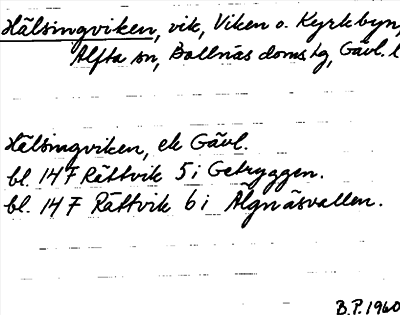 Hälsingviken, vik, Viken o. Kyrkbyn,
Alfta sn, Bollnäs doms. lg, Gävl. l
Hälsingviken, ek Gävl.
bl. 14 F Rättvik 5 i Getryggen.
bl. 14 F Rättvik 6 i Älgnäsvallen.
B.P. 1960